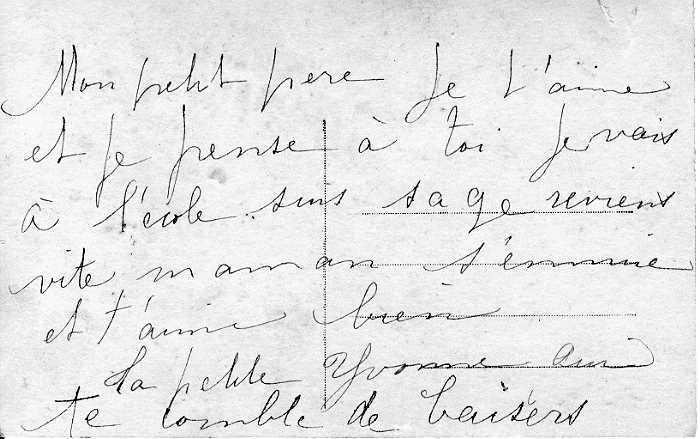 Mon petit père Je t'aime
et je pense à toi Je vais
à l'école suis sage reviens
vite maman s'ennuie
et t'aime bien
ta petite Yvonne qui
te comble de baisers